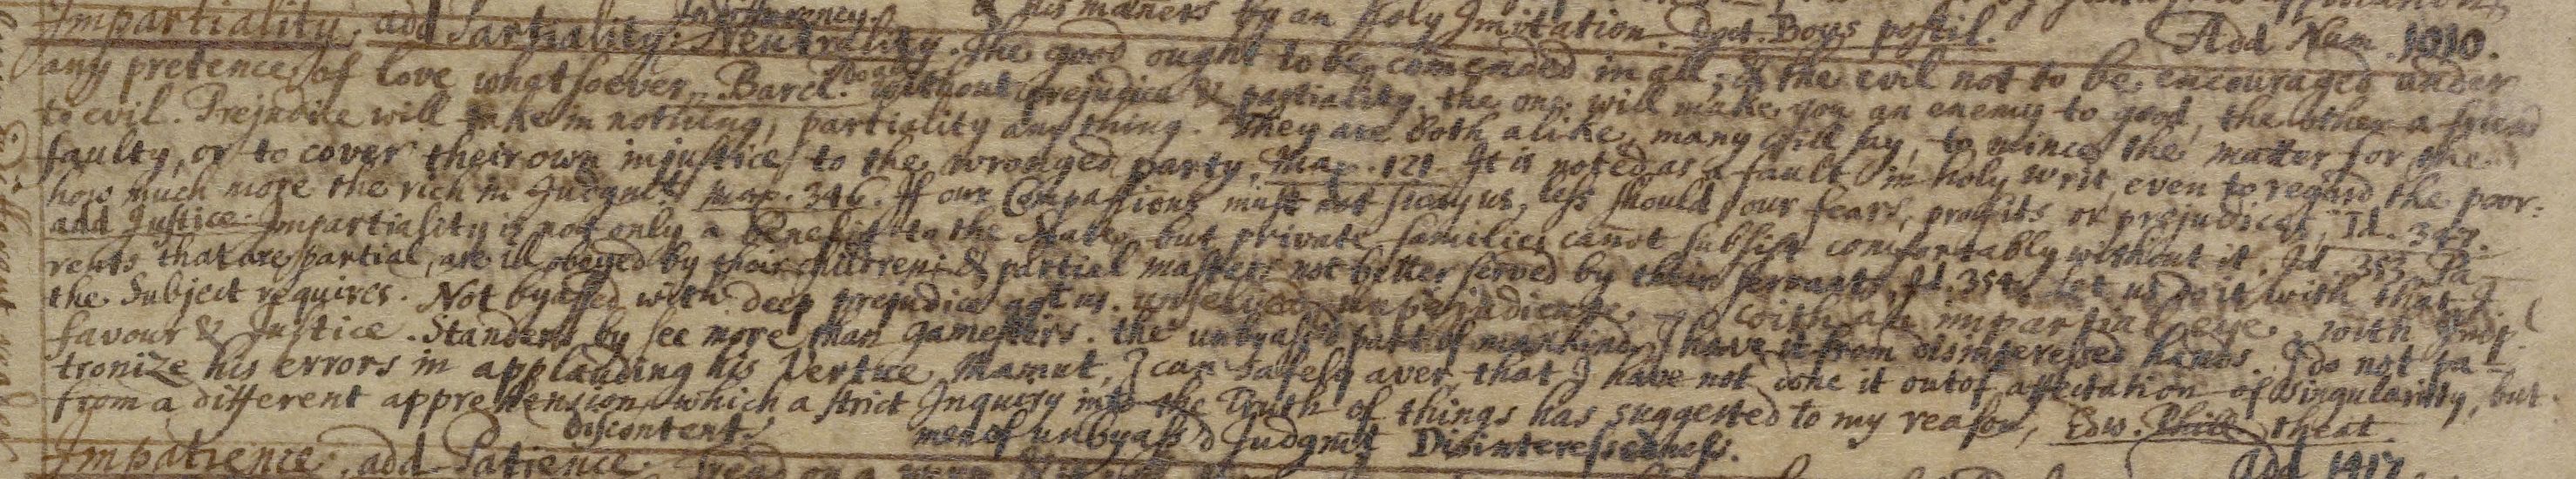 his maners by an holy Imitation. Doct. Boys postil.
Indifferency.
Impartiality. add Partiality. Neutrality. The good ought to be comended in all, & the evil not to be encouraged under Add Num. 1010.
any pretence of love whatsoever, Barcl. without prejudice & partiality. the one will make you an enemy to good, the other a friend
to evil. Prejudice will take in nothing, partiality any thing. They are both alike, many will say, to mince the matter for the
faulty, or to cover their own injustice to the wronged party. Max. 121. It is noted as a fault in holy writ, even to regard the poor:
how much more the rich in Judgmt. max. 346. If our Compassions must not sway us, less should our fears, profits or prejudices, Id. 347.
add Justice. Impartiality is not only a Benefit to the State, but private families cannot subsist comfortably without it. Id. 353. Pa-
rents that are partial, are ill obeyed by their children: & partial masters not better served by their servants, Id. 354. let us do it with that I
the Subject requires. Not byassed with deep prejudice agst us. with an impartial eye. with Indif.
favour & Justice. Standers by see more than gamesters. the unbyass'd part of mankind. I have it from disinteressed hands. I do not pa-
tronize his errors in applauding his Vertue, Mamut, I can safely aver, that I have not done it out of affectation of Singularity, but
from a different apprehension, which a strict Inquiry into the Truth of things has suggested to my reason, Edw. Phill. theat.
men of unbyass'd Judgmt Disinteressedness.
discontent.
Impatience. add Patience. Add 1417.